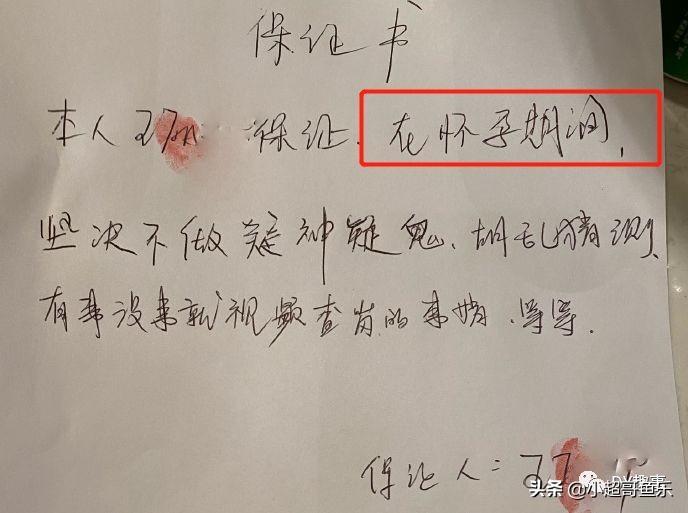 保证书
本人 保证、在怀孕期间,
坚决不做疑神疑鬼、胡乱猜测、
有事没事就视频查岗的事情、等等.
保证人:
DY趣事
头条 @小超哥鱼乐